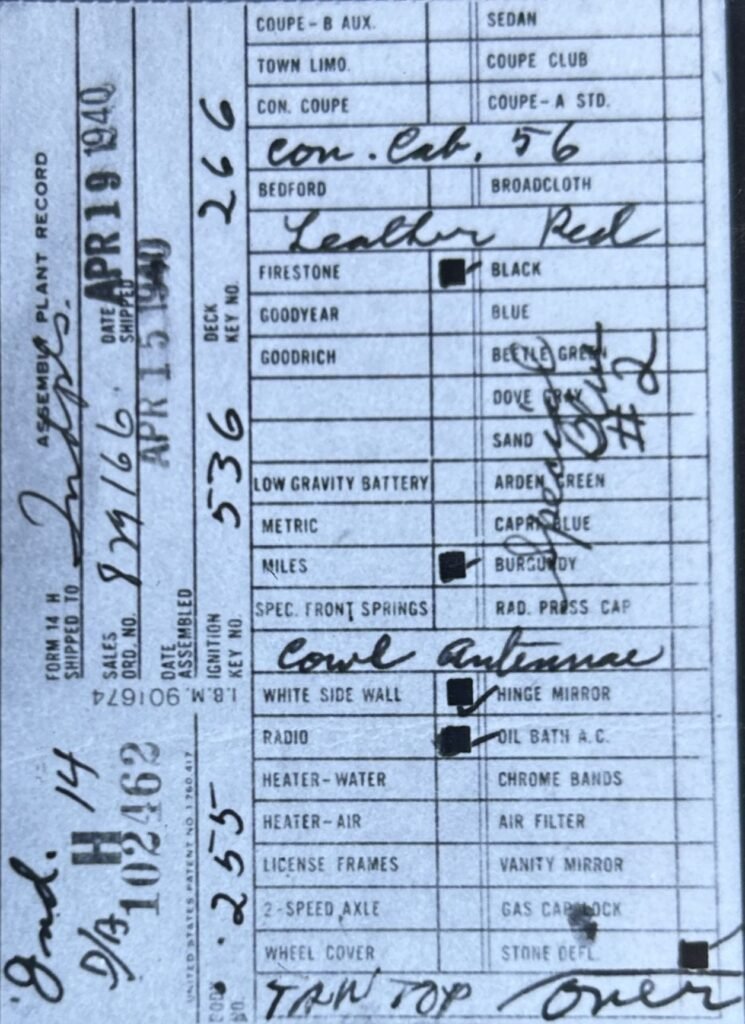 FORM 14 H ASSEMBLY PLANT RECORD
SHIPPED TO Indpls.
SALES ORD. NO. 829166 DATE SHIPPED APR 19 1940
DATE ASSEMBLED APR 15 1940
IGNITION KEY NO. 536 DECK KEY NO. 266
I.B.M. 901674
Ind.
D/A H 14
102462
UNITED STATES PATENT NO. 1,780,417
BODY NO. 255
COUPE-B AUX. SEDAN
TOWN LIMO. COUPE CLUB
CON. COUPE COUPE-A STD.
Con. Cab. 56
BEDFORD BROADCLOTH
Leather Red
FIRESTONE BLACK
GOODYEAR BLUE
GOODRICH BEETLE GREEN
DOVE GRAY
SAND
LOW GRAVITY BATTERY ARDEN GREEN
METRIC CAPRI BLUE
MILES BURGUNDY
SPEC. FRONT SPRINGS RAD. PRESS CAP
Special
#2
Cowl Antennae
WHITE SIDE WALL HINGE MIRROR
RADIO OIL BATH A.C.
HEATER-WATER CHROME BANDS
HEATER-AIR AIR FILTER
LICENSE FRAMES VANITY MIRROR
2-SPEED AXLE GAS CAP LOCK
WHEEL COVER STONE DEFL.
TAN TOP over